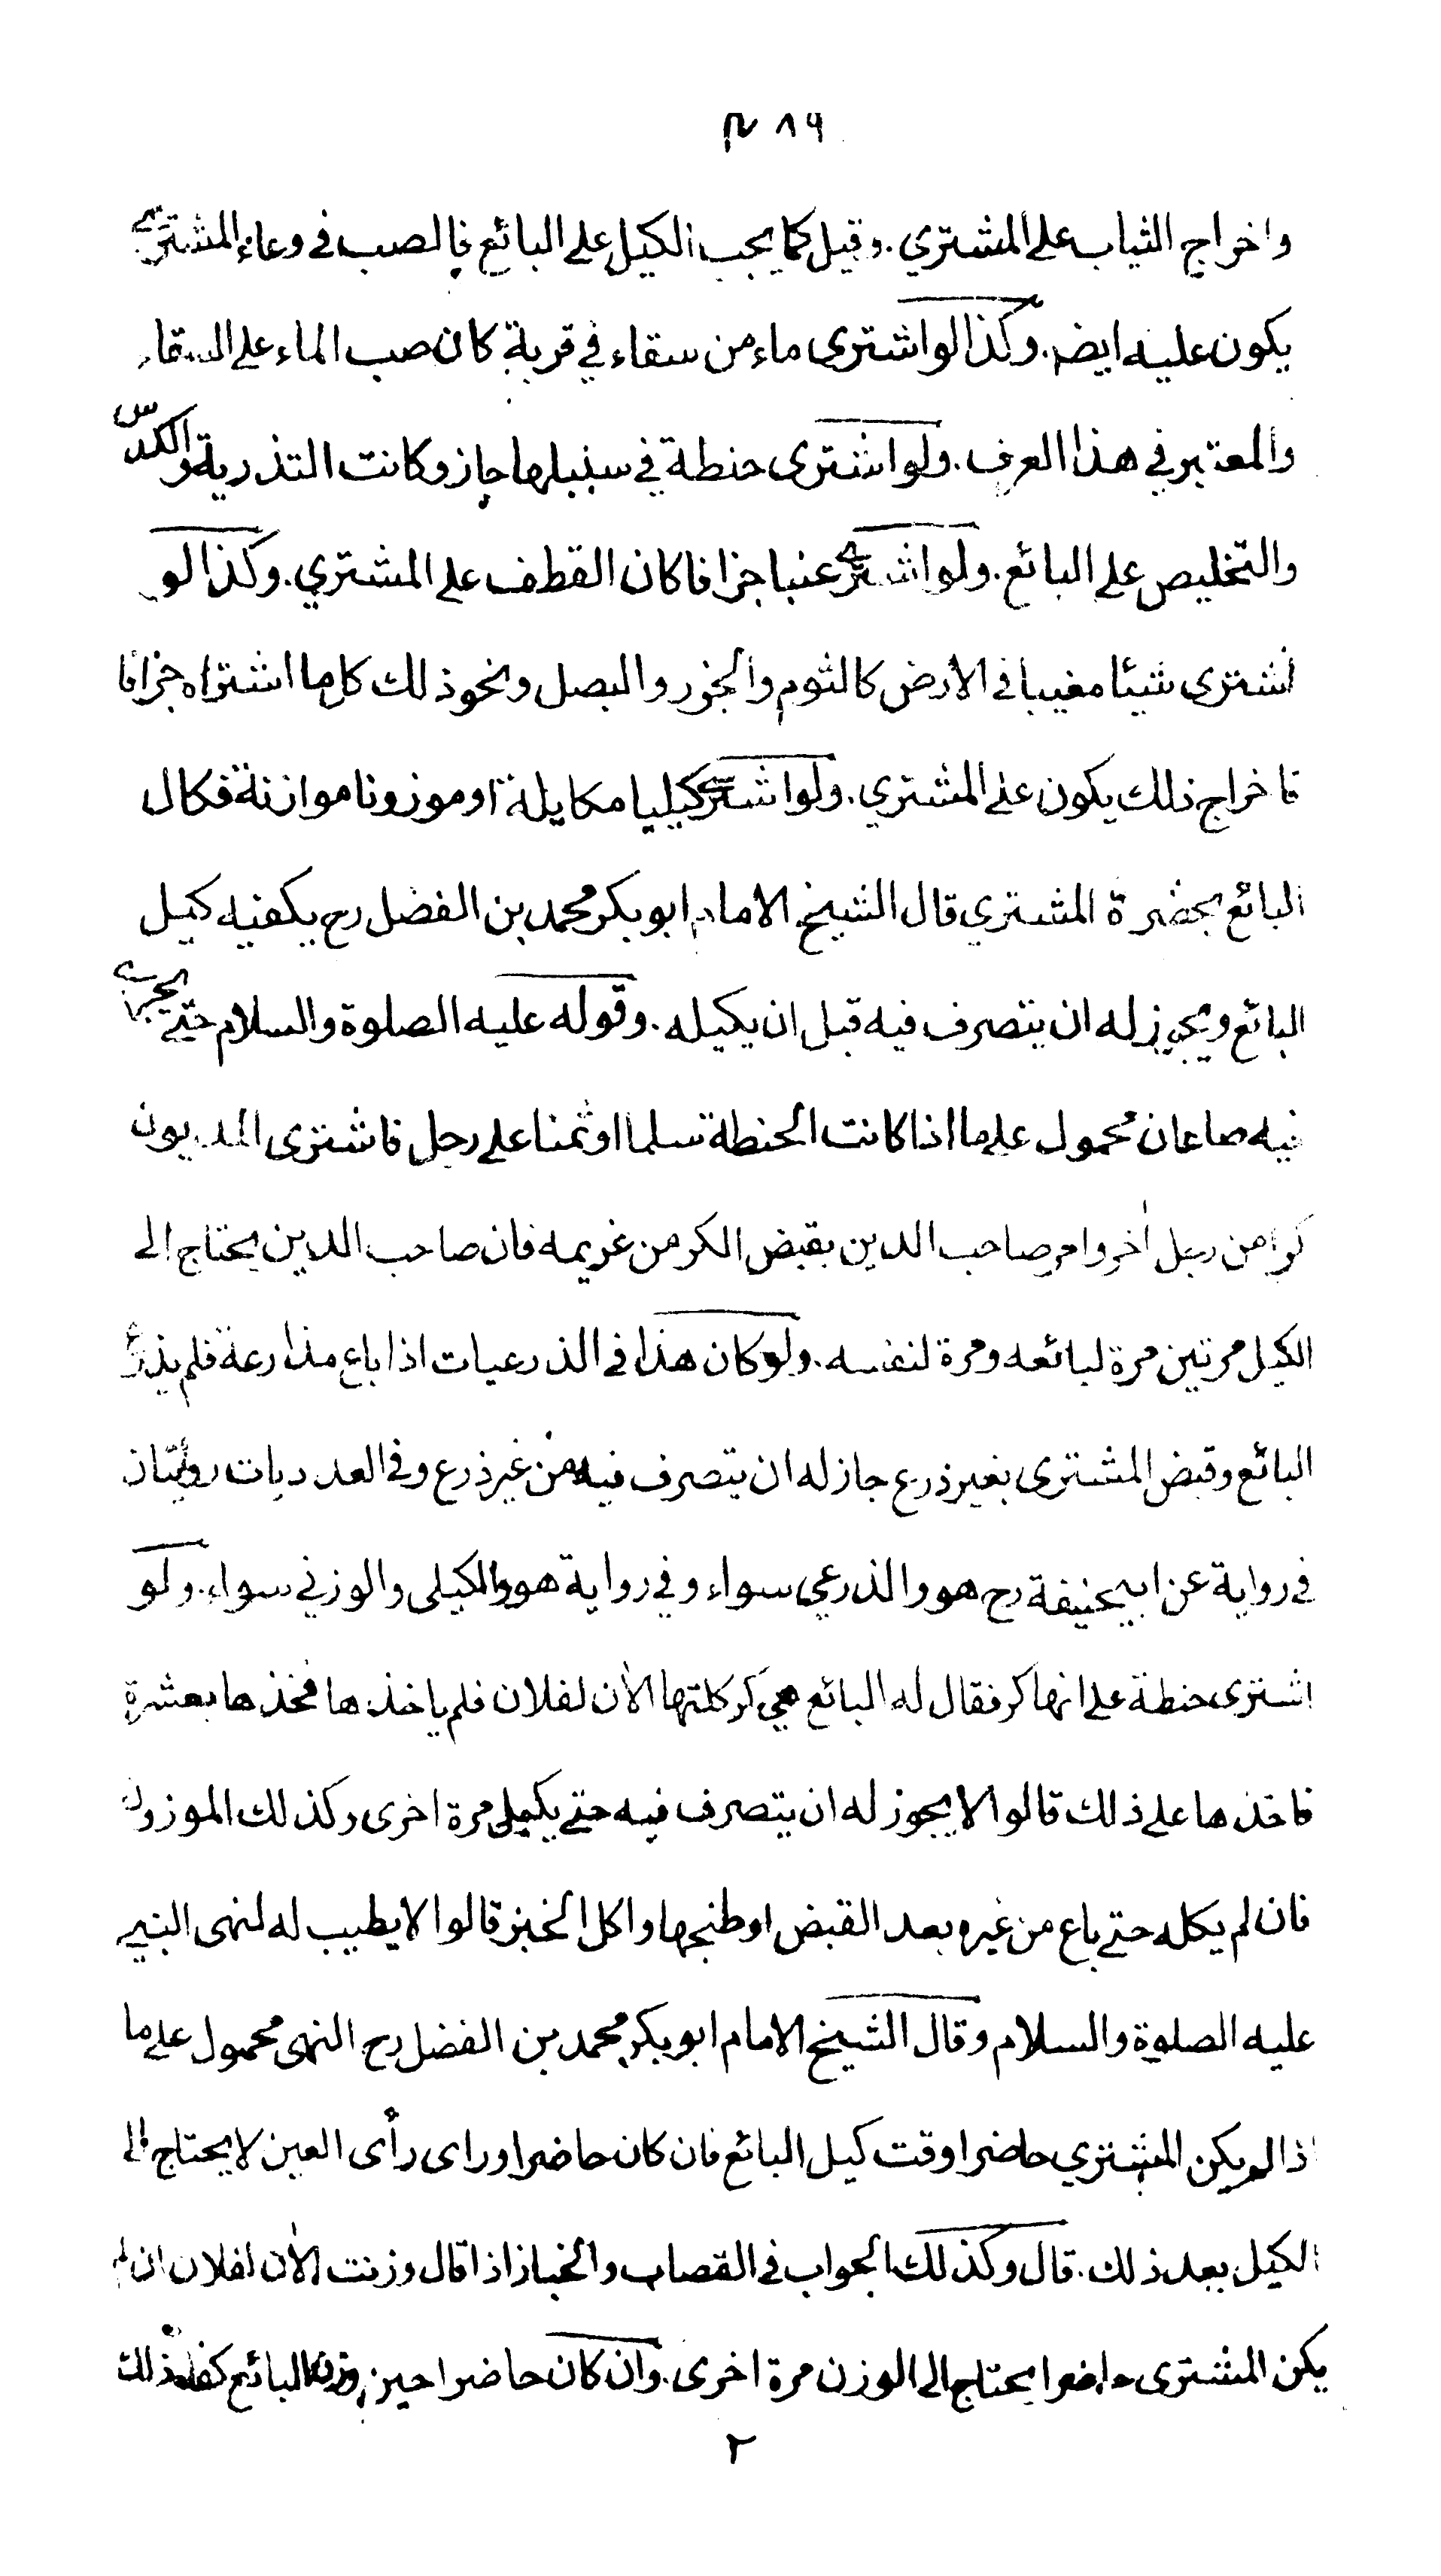 ٤٨٩
واخراج الثياب على المشتري. وقيل كما يجب الكيل على البائع فالصب في وعاء المشتري
يكون عليه ايضا. وكذا لو اشترى ماء من سقاء في قربة كان صب الماء على السقاء
والمعتبر في هذا العرف. ولو اشترى حنطة في سنبلها جاز وكانت التذرية والكدس
والتخليص على البائع. ولو اشترى عنبا جزافا كان القطف على المشتري. وكذا لو
اشترى شيئا مغيبا في الارض كالثوم والجزر والبصل ونحو ذلك كل ما اشتراه جزافا
فاخراج ذلك يكون على المشتري. ولو اشترى كيليا مكايلة او موزونا موازنة فكال
البائع بحضرة المشتري قال الشيخ الامام ابو بكر محمد بن الفضل رح يكفيه كيل
البائع ويجوز له ان يتصرف فيه قبل ان يكيله. وقوله عليه الصلوة والسلام حتى يجري
فيه صاعان محمول على ما اذا كانت الحنطة سلما او ثمنا على رجل فاشترى المديون
كرا من رجل اخر وامر صاحب الدين بقبض الكر من غريمه فان صاحب الدين يحتاج الى
الكيل مرتين مرة لبائعه ومرة لنفسه. ولو كان هذا في الذرعيات اذا باع مذارعة فلم يذرع
البائع وقبض المشترى بغير ذرع جاز له ان يتصرف فيه من غير ذرع وفي العدديات روايتان
في رواية عن ابيحنيفة رح هو والذرعي سواء وفي رواية هو والكيلى والوزني سواء. ولو
اشترى حنطة على انها كر فقال له البائع هي كر كلتها الآن لفلان فلم ياخذها فخذها بعشرة
فاخذها على ذلك قالوا لا يجوز له ان يتصرف فيه حتى يكيل مرة اخرى وكذلك الموزون
فان لم يكله حتى باع من غيره بعد القبض او طحنها واكل الخبز قالوا لا يطيب له لنهى النبي
عليه الصلوة والسلام وقال الشيخ الامام ابو بكر محمد بن الفضل رح النهى محمول على ما
اذا لم يكن المشتري حاضرا وقت كيل البائع فان كان حاضرا وراى رأى العين لا يحتاج الى
الكيل بعد ذلك. قال وكذلك الجواب في القصاب والخباز اذا قال وزنت الآن لفلان ان لم
يكن المشترى حاضرا يحتاج الى الوزن مرة اخرى. وان كان حاضرا حين وزن البائع كفاه ذلك
٢